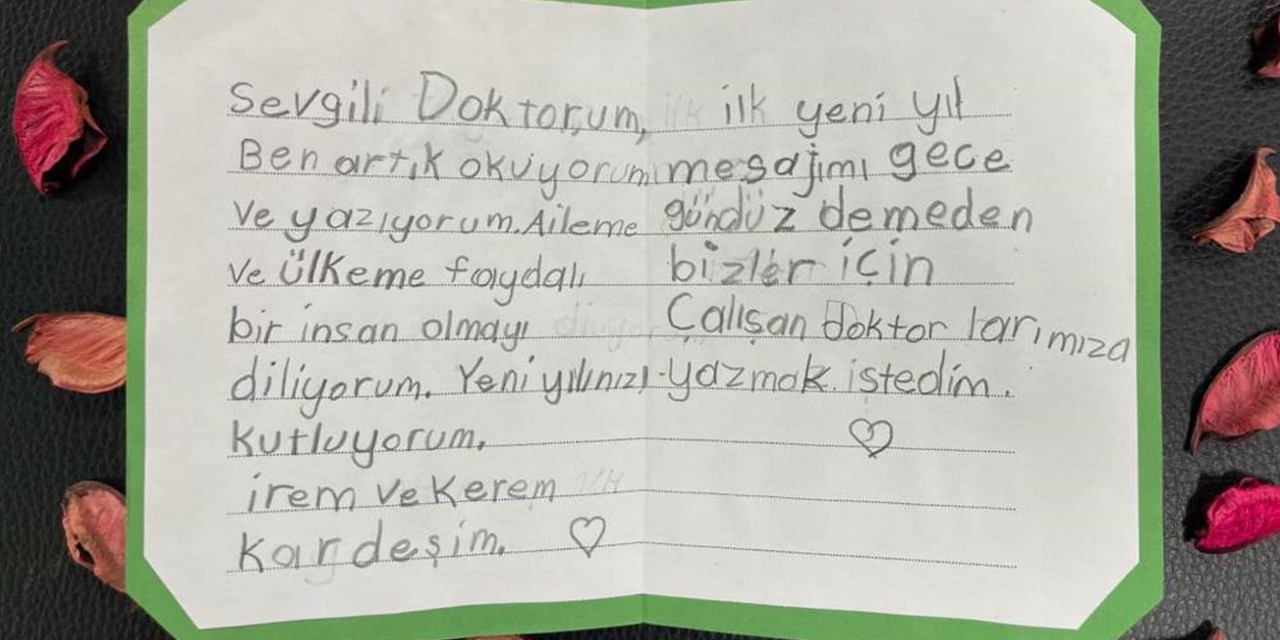 Sevgili Doktorum,
Ben artık okuyorum
ve yazıyorum. Aileme
ve ülkeme faydalı
bir insan olmayı
diliyorum. Yeni yılınızı
kutluyorum.
irem ve Kerem
kardeşim. ♡
ilk yeni yıl
mesajımı gece
gündüz demeden
bizler için
Çalışan doktorlarımıza
yazmak istedim.
♡